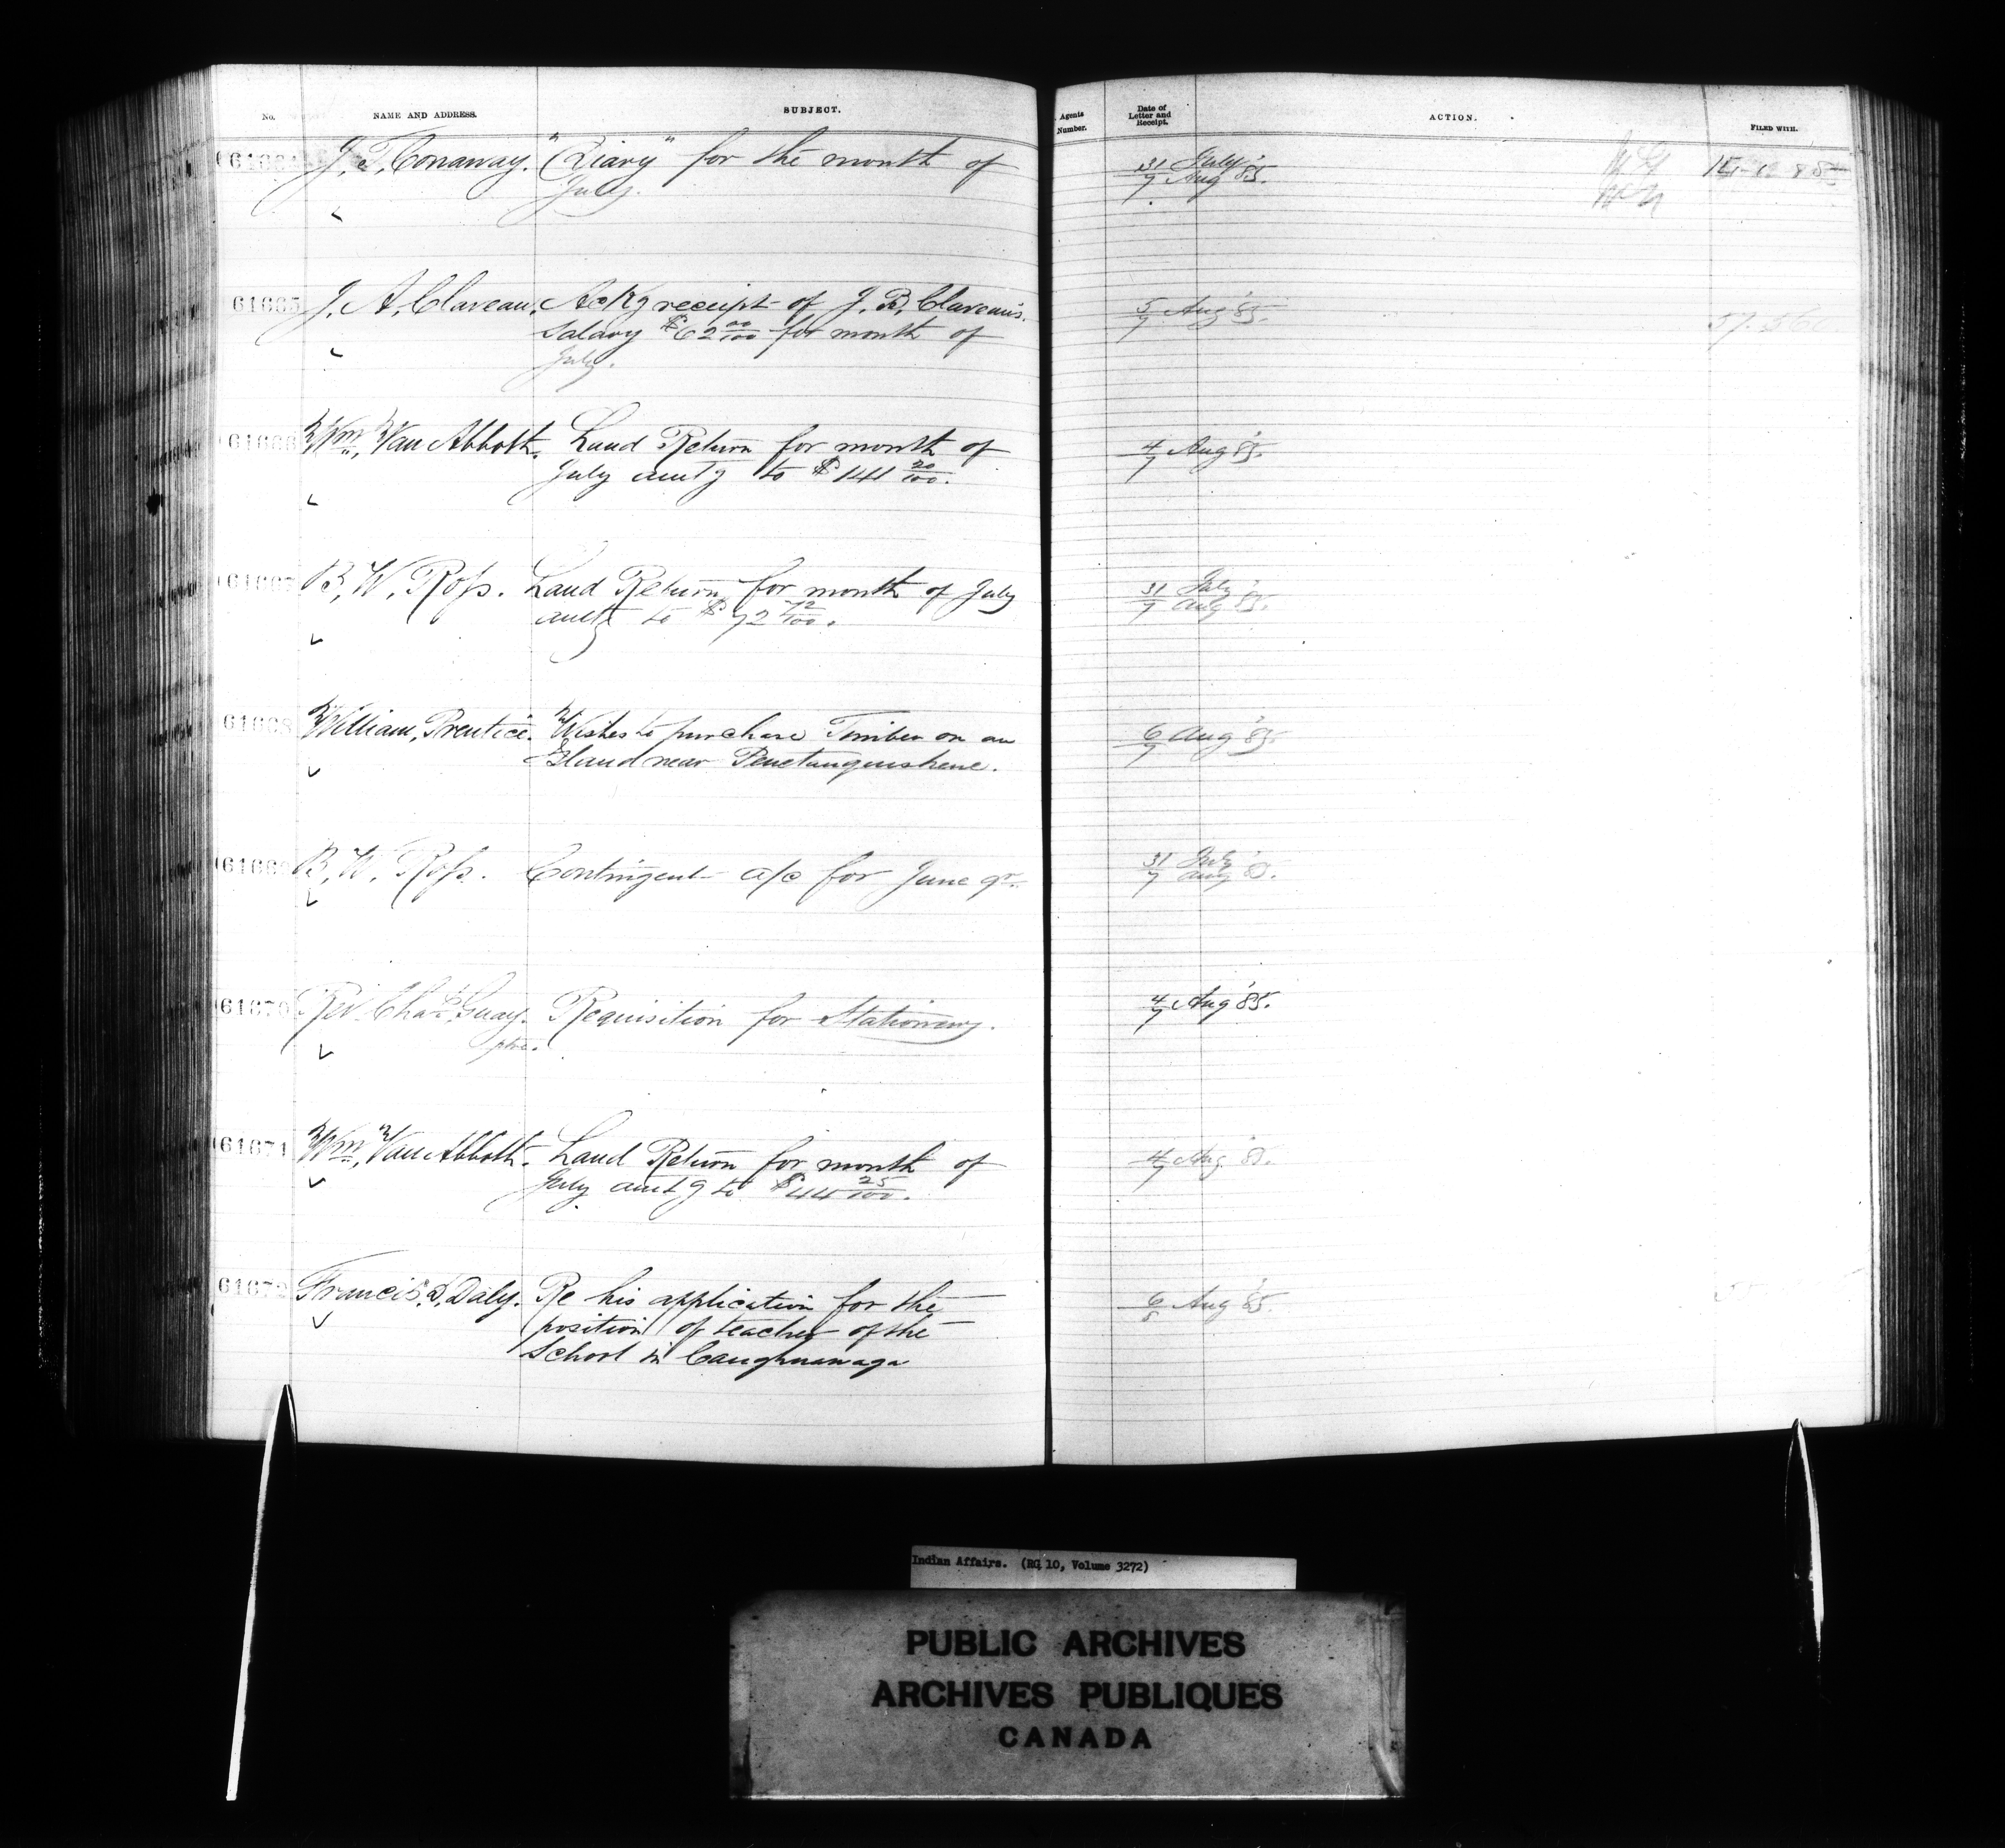 No. NAME AND ADDRESS. SUBJECT. Agents Number. Date of Letter and Receipt. ACTION. FILED WITH.
61664 J. T. Conaway. "Diary" for the month of 31 July
July. 7 Aug '85.
61665 J. A. Claveau. Ackg receipt of J. B. Claveau's 5 Aug '85.
Salary $62 00/100 for month of 7 57.560
July.
61666 Wm. Van Abbott. Land Return for month of 4 Aug '85.
July amtg to $141 20/100. 7
61667 B. W. Ross. Land Return for month of July 31 July
amtg to $72 72/100. 7 Aug '85.
61668 William Prentice. Wishes to purchase Timber on an 6 Aug '85.
Island near Penetanguishene. 7
61669 B. W. Ross. Contingent a/c for June qr. 31 July
7 Aug '85.
61670 Rev. Chas. Guay. Requisition for Stationery. 4 Aug '85.
ptre. 7
61671 Wm. Van Abbott. Land Return for month of 4 Aug '85.
July amtg to $44 25/100. 7
61672 Francis D. Daly. Re his application for the 6 Aug '85.
position of teacher of the 8
School in Caughnawaga
Indian Affairs. (RG 10, Volume 3272)
PUBLIC ARCHIVES
ARCHIVES PUBLIQUES
CANADA